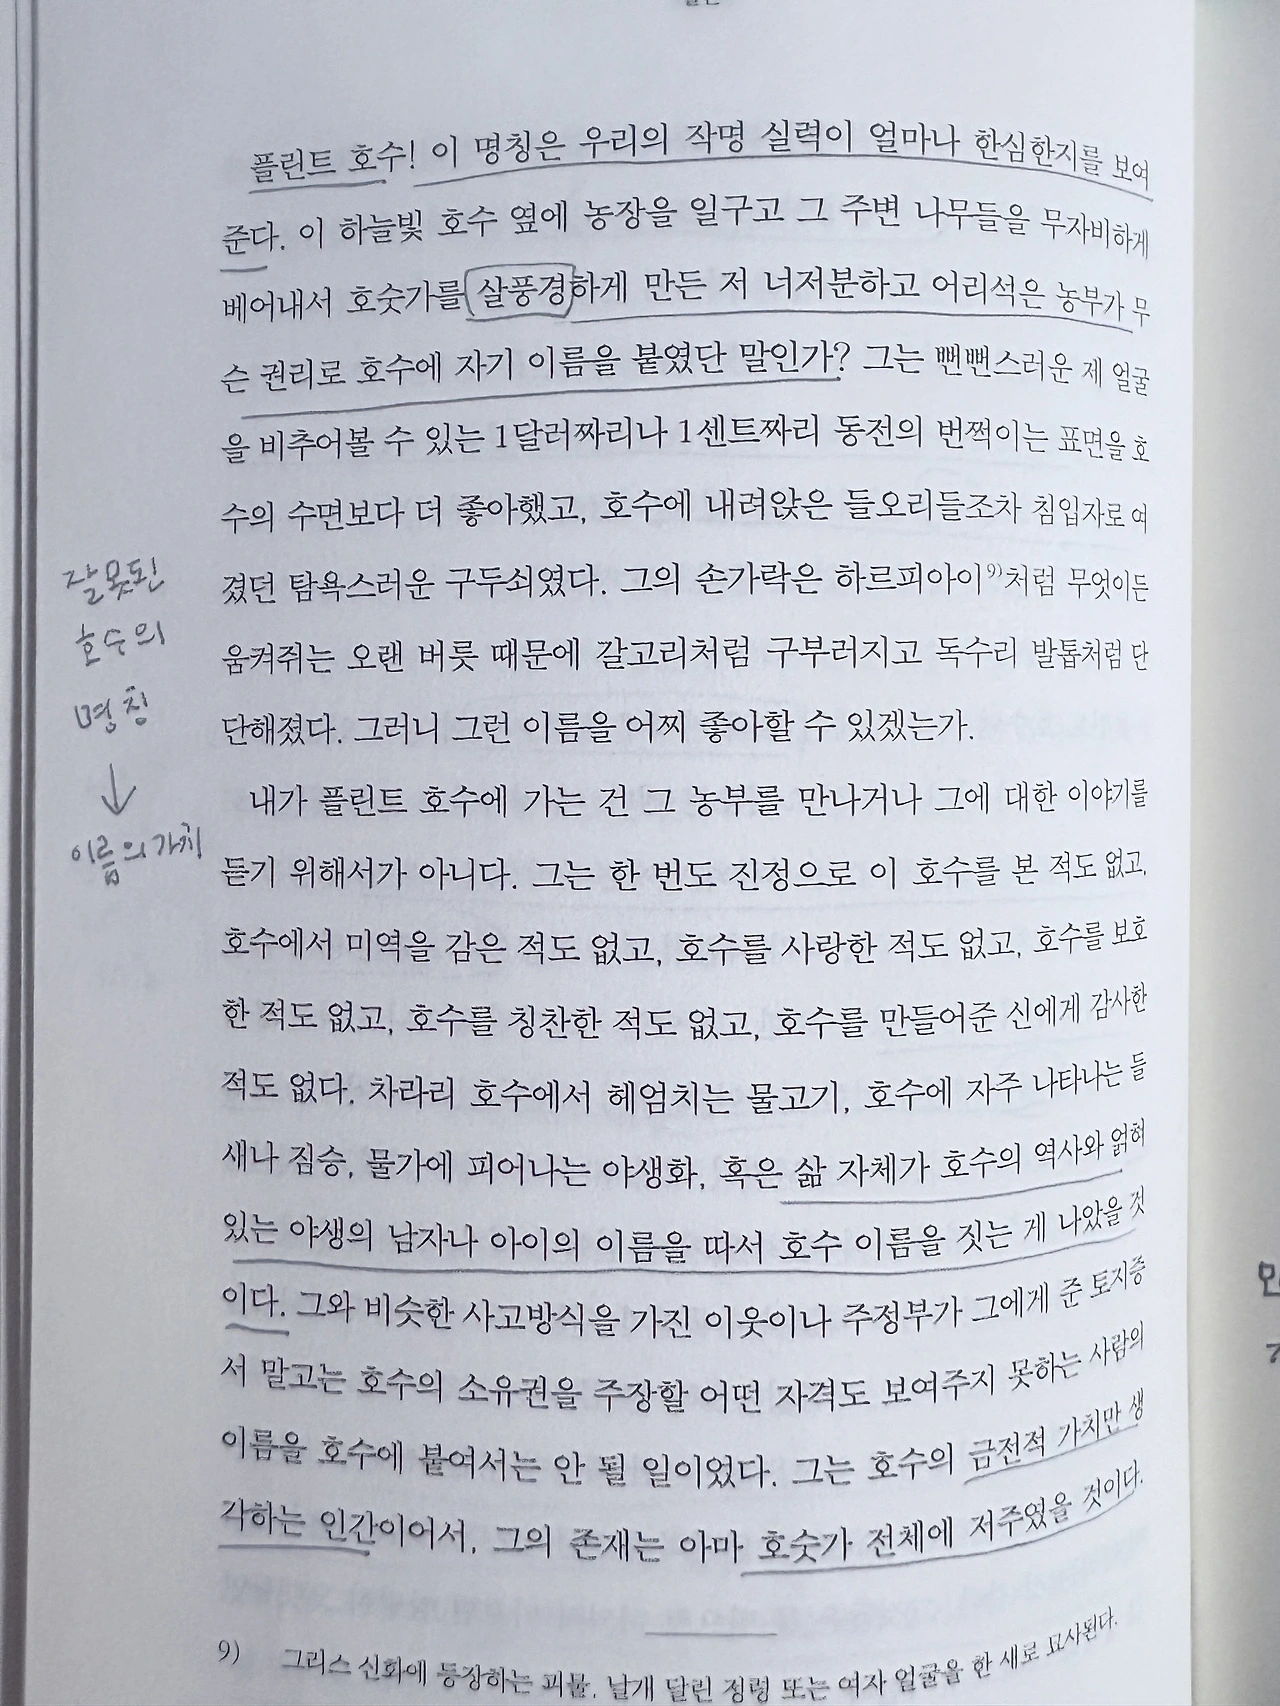 플린트 호수! 이 명칭은 우리의 작명 실력이 얼마나 한심한지를 보여
준다. 이 하늘빛 호수 옆에 농장을 일구고 그 주변 나무들을 무자비하게
베어내서 호숫가를 살풍경하게 만든 저 너저분하고 어리석은 농부가 무
슨 권리로 호수에 자기 이름을 붙였단 말인가? 그는 뻔뻔스러운 제 얼굴
을 비추어볼 수 있는 1달러짜리나 1센트짜리 동전의 번쩍이는 표면을 호
수의 수면보다 더 좋아했고, 호수에 내려앉은 들오리들조차 침입자로 여
겼던 탐욕스러운 구두쇠였다. 그의 손가락은 하르피아이9)처럼 무엇이든
움켜쥐는 오랜 버릇 때문에 갈고리처럼 구부러지고 독수리 발톱처럼 단
단해졌다. 그러니 그런 이름을 어찌 좋아할 수 있겠는가.
잘못된
호수의
명칭
↓
이름의 가치
내가 플린트 호수에 가는 건 그 농부를 만나거나 그에 대한 이야기를
듣기 위해서가 아니다. 그는 한 번도 진정으로 이 호수를 본 적도 없고,
호수에서 미역을 감은 적도 없고, 호수를 사랑한 적도 없고, 호수를 보호
한 적도 없고, 호수를 칭찬한 적도 없고, 호수를 만들어준 신에게 감사한
적도 없다. 차라리 호수에서 헤엄치는 물고기, 호수에 자주 나타나는 들
새나 짐승, 물가에 피어나는 야생화, 혹은 삶 자체가 호수의 역사와 얽혀
있는 야생의 남자나 아이의 이름을 따서 호수 이름을 짓는 게 나았을 것
이다. 그와 비슷한 사고방식을 가진 이웃이나 주정부가 그에게 준 토지증
서 말고는 호수의 소유권을 주장할 어떤 자격도 보여주지 못하는 사람의
이름을 호수에 붙여서는 안 될 일이었다. 그는 호수의 금전적 가치만 생
각하는 인간이어서, 그의 존재는 아마 호숫가 전체에 저주였을 것이다.
9) 그리스 신화에 등장하는 괴물. 날개 달린 정령 또는 여자 얼굴을 한 새로 묘사된다.